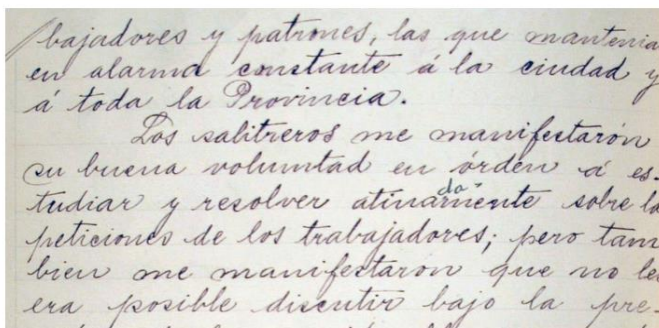 bajadores y patrones, las que mantenia
en alarma constante á la ciudad y
á toda la Provincia.
Los salitreros me manifestarón
su buena voluntad en órden á es-
tudiar y resolver atinadamente sobre la
peticiones de los trabajadores; pero tam
bien me manifestaron que no le
era posible discutir bajo la pre-